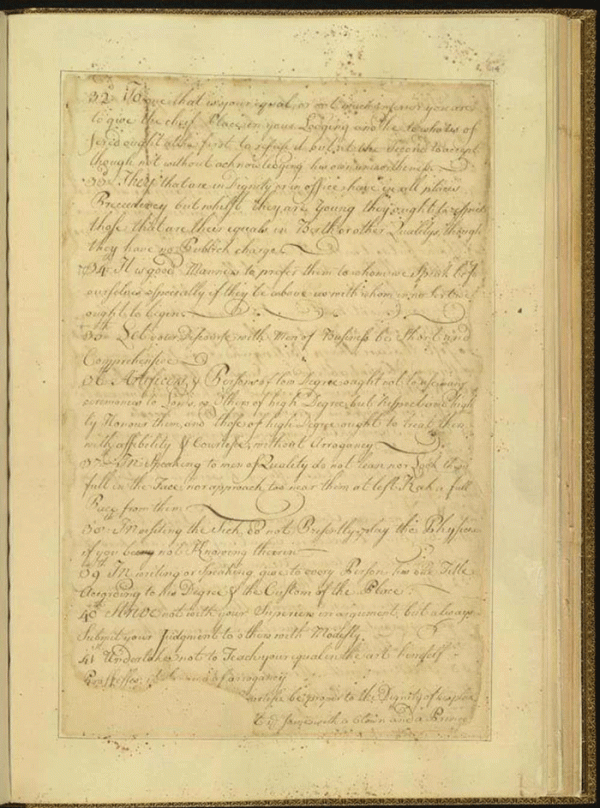 32d To one that is your equal, or not much inferior you are
to give the chief Place in your Lodging and he to who tis of
fered ought at the first to refuse it but at the Second to accept
though not without acknowledging his own unworthiness
33d They that are in Dignity or in office have in all places
Precedency but whilst they are Young they ought to respect
those that are their equals in Birth or other Qualitys, though
they have no Publick charge
34th It is good Manners to prefer them to whom we Speak befo
ourselves especially if they be above us with whom in no Sort we
ought to begin
35th Let your Discourse with Men of Business be Short and
Comprehensive
36th Artificers & Persons of low Degree ought not to use many
ceremonies to Lords, or Others of high Degree but Respect and high
ly Honour them, and those of high Degree ought to treat them
with affibility & Courtesie, without Arrogancy
37th In Speaking to men of Quality do not lean nor Look them
full in the Face, nor approach too near them at lest Keep a full
Pace from them
38th In visiting the Sick, do not Presently play the Physicion
if you be not Knowing therein
39th In writing or Speaking, give to every Person his due Title
According to his Degree & the Custom of the Place.
40th Strive not with your Superiers in argument, but always
Submit your Judgment to others with Modesty
41st Undertake not to Teach your equal in the art himself
Proffesses; it of arrogancy
be proper to the Dignity of
same with a Clown and a Prince